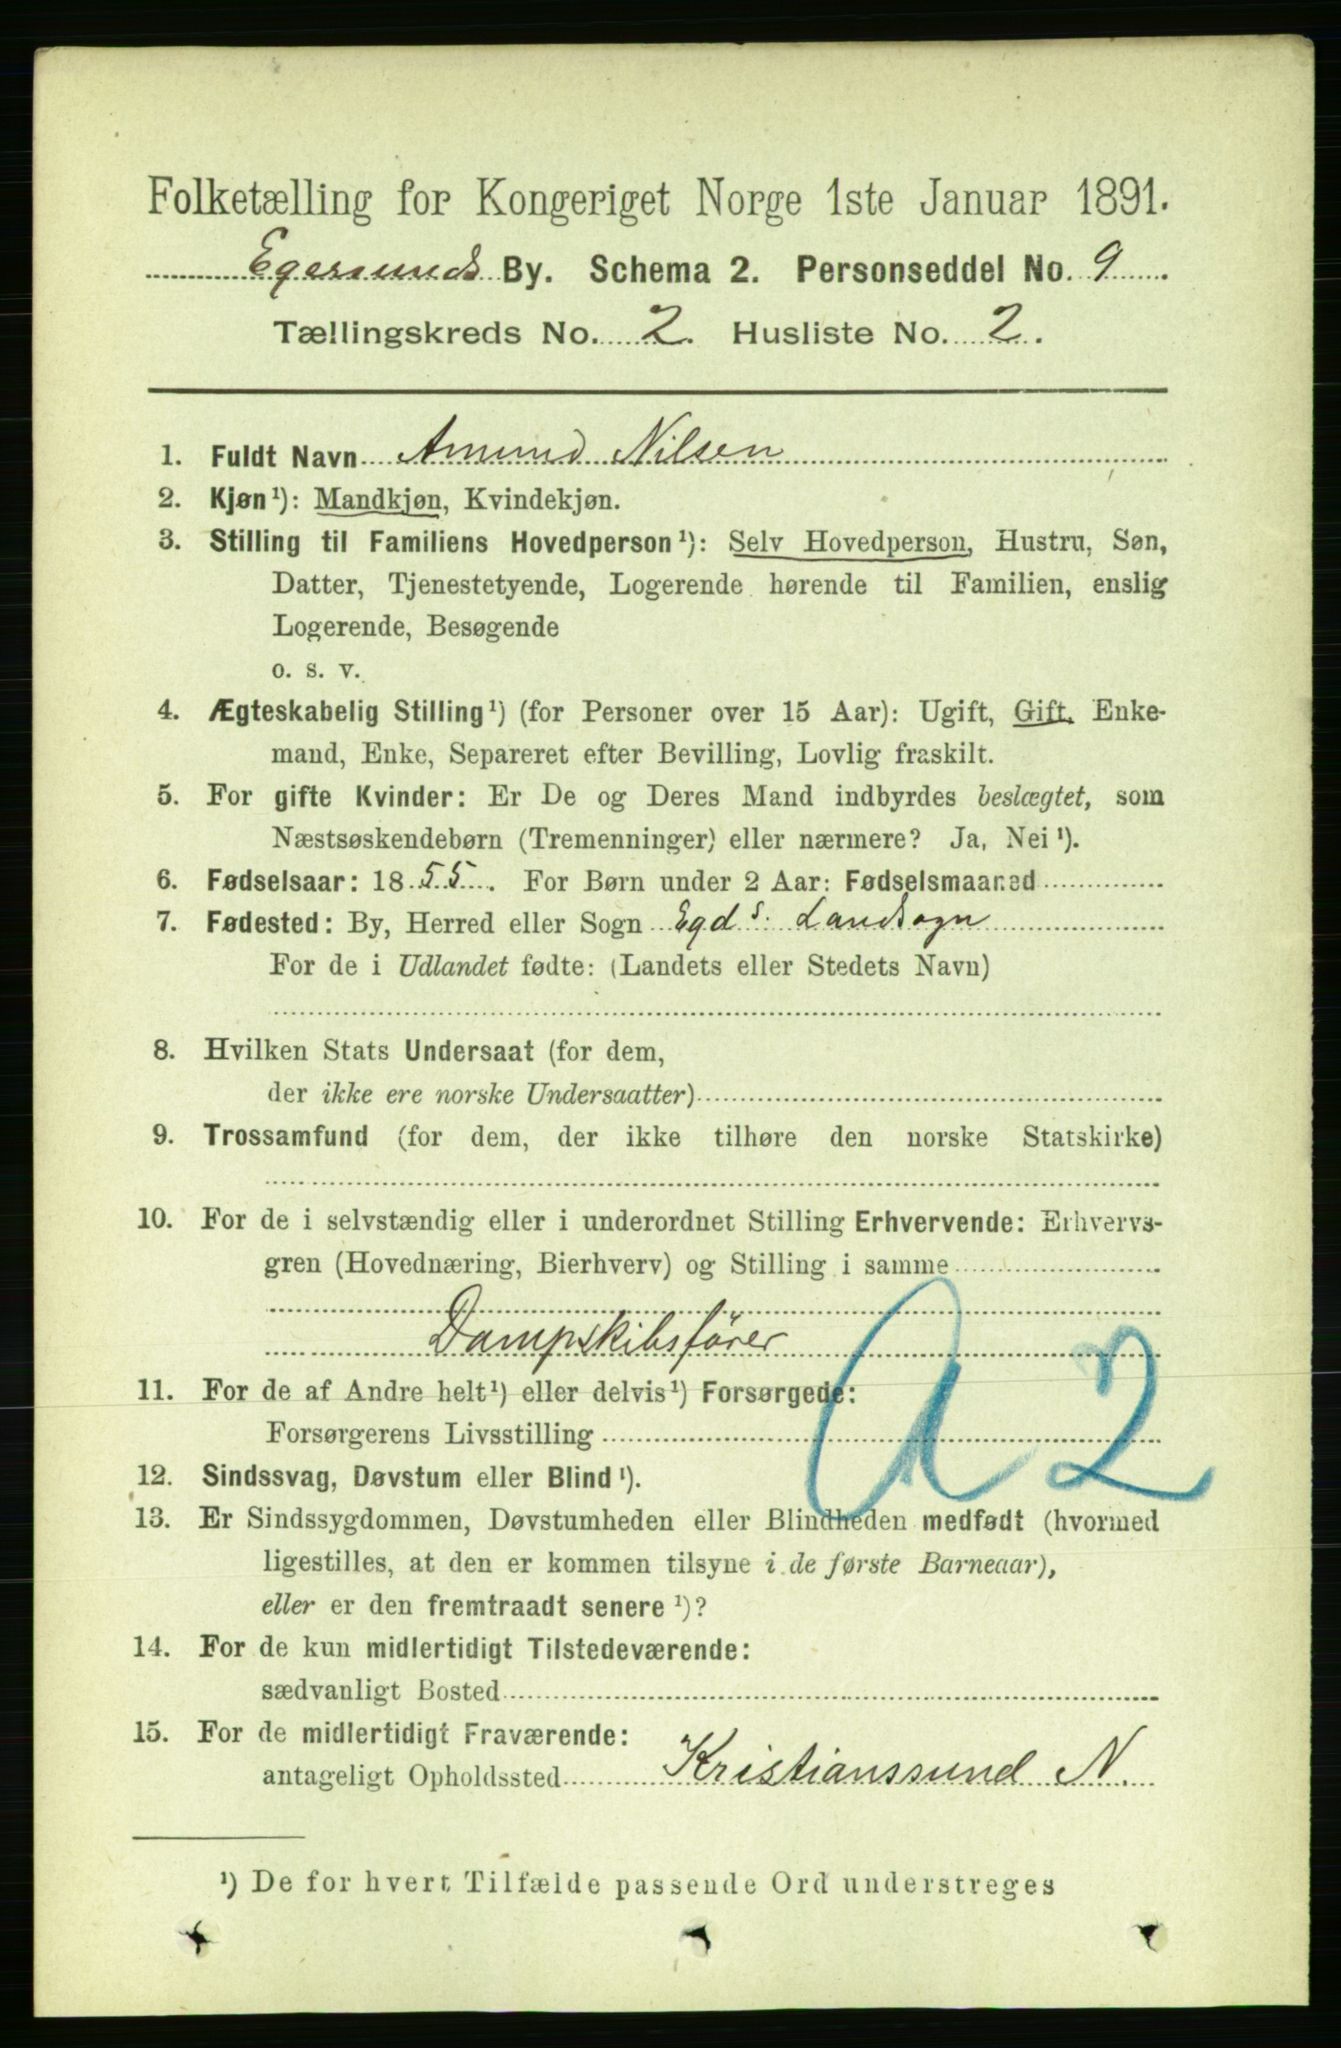 Folketælling for Kongeriget Norge 1ste Januar 1891.
Egersunds By. Schema 2. Personseddel No. 9
Tællingskreds No. 2. Husliste No. 2.
1. Fuldt Navn Amund Nilsen
2. Kjøn¹): Mandkjøn, Kvindekjøn.
3. Stilling til Familiens Hovedperson¹): Selv Hovedperson, Hustru, Søn,
Datter, Tjenestetyende, Logerende hørende til Familien, enslig
Logerende, Besøgende
o. s. v.
4. Ægteskabelig Stilling¹) (for Personer over 15 Aar): Ugift, Gift, Enke-
mand, Enke, Separeret efter Bevilling, Lovlig fraskilt.
5. For gifte Kvinder: Er De og Deres Mand indbyrdes beslægtet, som
Næstsøskendebørn (Tremenninger) eller nærmere? Ja, Nei¹).
6. Fødselsaar: 1855. For Børn under 2 Aar: Fødselsmaaned
7. Fødested: By, Herred eller Sogn Egds. Landsogn
For de i Udlandet fødte: (Landets eller Stedets Navn)
8. Hvilken Stats Undersaat (for dem,
der ikke ere norske Undersaatter)
9. Trossamfund (for dem, der ikke tilhøre den norske Statskirke)
10. For de i selvstændig eller i underordnet Stilling Erhvervende: Erhvervs-
gren (Hovednæring, Bierhverv) og Stilling i samme
Dampskibsfører
a 2
11. For de af Andre helt¹) eller delvis¹) Forsørgede:
Forsørgerens Livsstilling
12. Sindssvag, Døvstum eller Blind¹).
13. Er Sindssygdommen, Døvstumheden eller Blindheden medfødt (hvormed
ligestilles, at den er kommen tilsyne i de første Barneaar),
eller er den fremtraadt senere¹)?
14. For de kun midlertidigt Tilstedeværende:
sædvanligt Bosted
15. For de midlertidigt Fraværende:
antageligt Opholdssted Kristianssund N.
¹) De for hvert Tilfælde passende Ord understreges